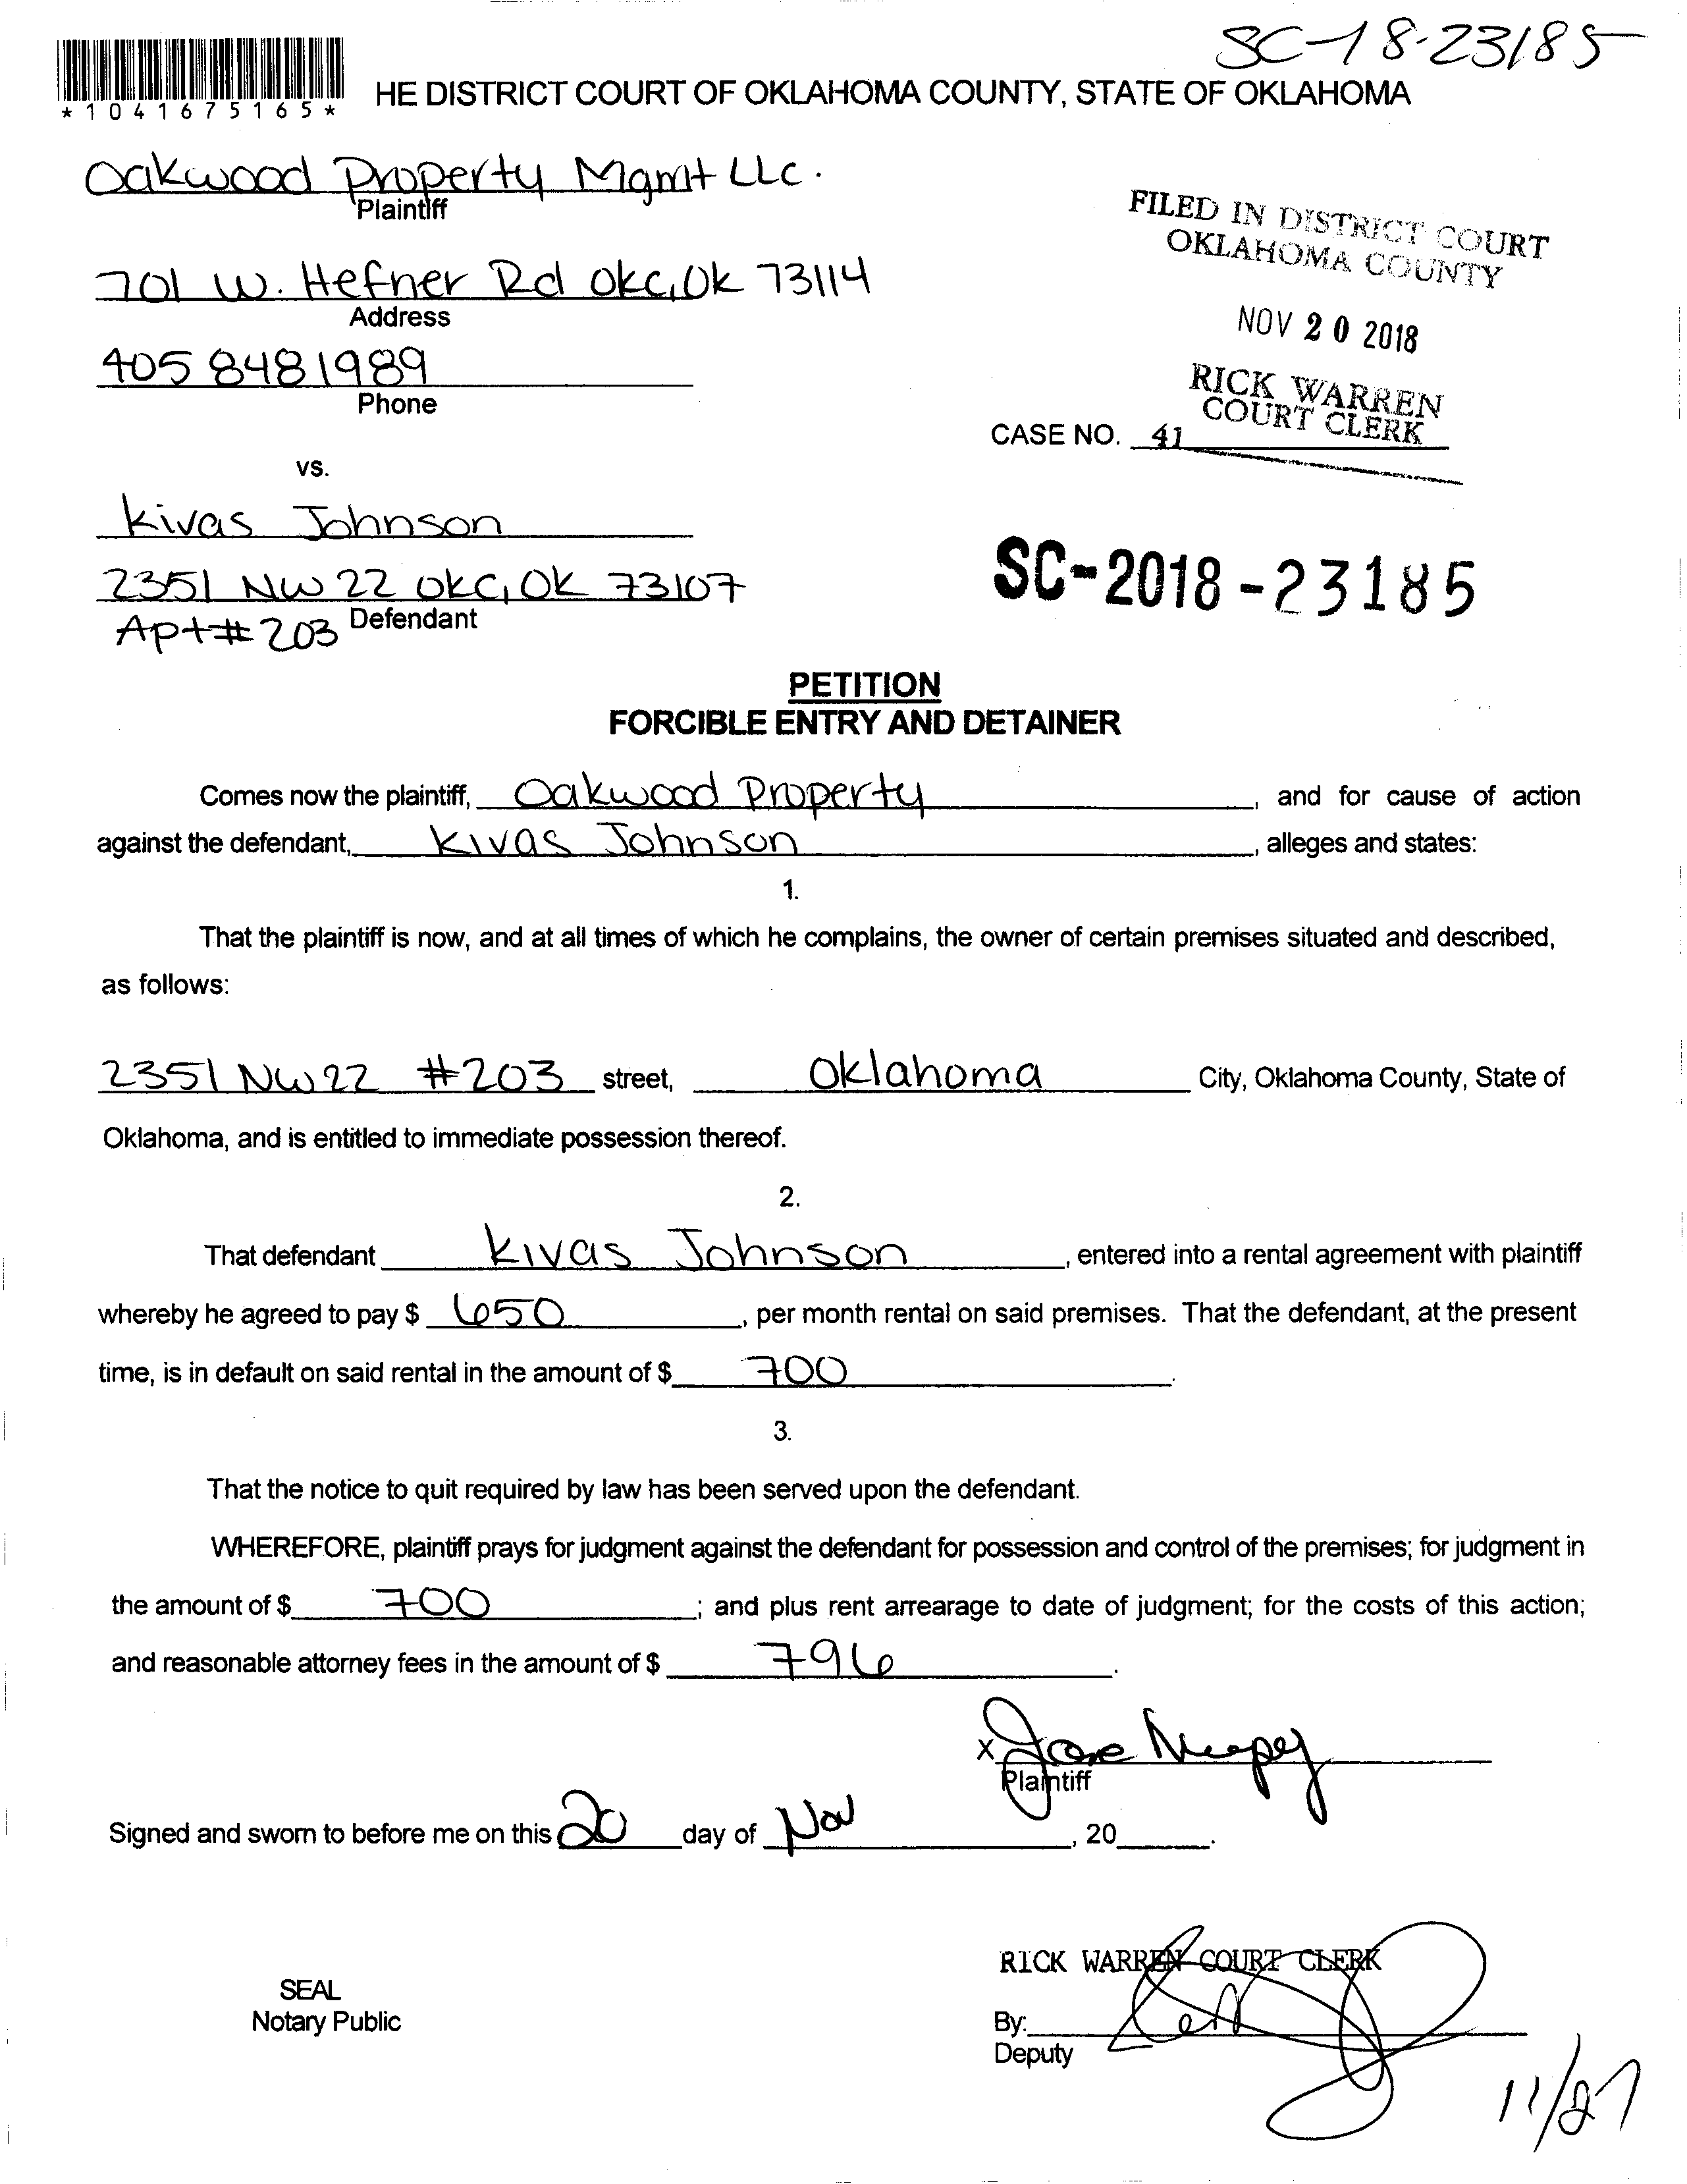 SC-18-23185
*1041675165*
HE DISTRICT COURT OF OKLAHOMA COUNTY, STATE OF OKLAHOMA
Oakwood Property Mgmt LLc.
Plaintiff
FILED IN DISTRICT COURT
OKLAHOMA COUNTY
701 W. Hefner Rd OKC, OK 73114
Address
NOV 20 2018
405 848 1989
Phone
RICK WARREN
COURT CLERK
CASE NO. 41
vs.
Kivas Johnson
2351 NW 22 OKC, OK 73107
Apt# 203 Defendant
SC-2018-23185
PETITION
FORCIBLE ENTRY AND DETAINER
Comes now the plaintiff, Oakwood Property, and for cause of action
against the defendant, Kivas Johnson, alleges and states:
1.
That the plaintiff is now, and at all times of which he complains, the owner of certain premises situated and described,
as follows:
2351 NW 22 #203 street, Oklahoma City, Oklahoma County, State of
Oklahoma, and is entitled to immediate possession thereof.
2.
That defendant Kivas Johnson, entered into a rental agreement with plaintiff
whereby he agreed to pay $ 650, per month rental on said premises. That the defendant, at the present
time, is in default on said rental in the amount of $ 700.
3.
That the notice to quit required by law has been served upon the defendant.
WHEREFORE, plaintiff prays for judgment against the defendant for possession and control of the premises; for judgment in
the amount of $ 700; and plus rent arrearage to date of judgment; for the costs of this action;
and reasonable attorney fees in the amount of $ 796.
x
Plaintiff
Signed and sworn to before me on this 20 day of Nov, 20____.
RICK WARREN COURT CLERK
SEAL
Notary Public
By:
Deputy
11/27